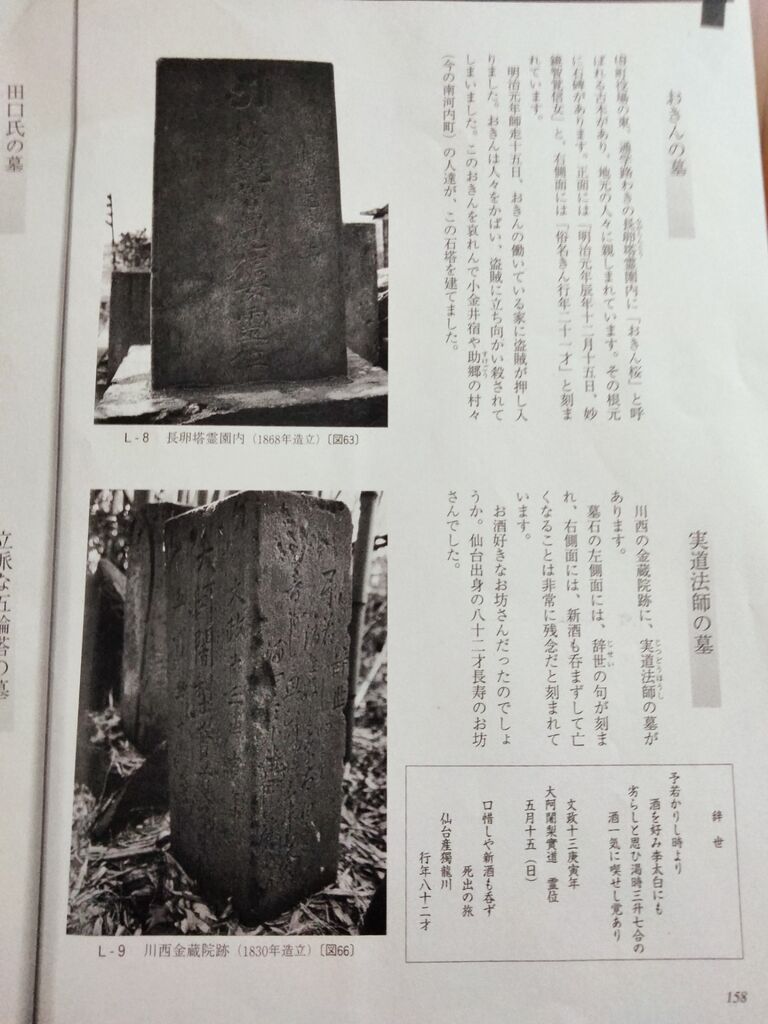 おきんの墓
町役場の東、通学路わきの長卵塔霊園内に『おきん桜』と呼
ばれる古木があり、地元の人々に親しまれています。その根元
に石碑があります。正面には『明治元年辰年十二月十五日、妙
鏡智覚信女』と、右側面には『俗名きん行年二十一才』と刻ま
れています。
明治元年師走十五日、おきんの働いている家に盗賊が押し入
りました。おきんは人々をかばい、盗賊に立ち向かい殺されて
しまいました。このおきんを哀れんで小金井宿や助郷の村々
(今の南河内町)の人達が、この石塔を建てました。
すけごう
L-8 長卵塔霊園内(1868年造立)〔図63〕
実道法師の墓
川西の金蔵院跡に、実道法師の墓が
じつどうほうし
あります。
墓石の左側面には、辞世の句が刻ま
じせい
れ、右側面には、新酒も呑まずして亡
くなることは非常に残念だと刻まれて
います。
お酒好きなお坊さんだったのでしょ
うか。仙台出身の八十二才長寿のお坊
さんでした。
辞世
予若かりし時より
酒を好み李太白にも
劣らしと思ひ渇時三升七合の
酒一気に喫せし覚あり
文政十三庚寅年
大阿闍梨實道 霊位
五月十五(日)
口惜しや新酒も呑ず
死出の旅
仙台産獨龍川
行年八十二才
L-9 川西金蔵院跡(1830年造立)〔図66〕
158
田口氏の墓
立派な五輪塔の墓